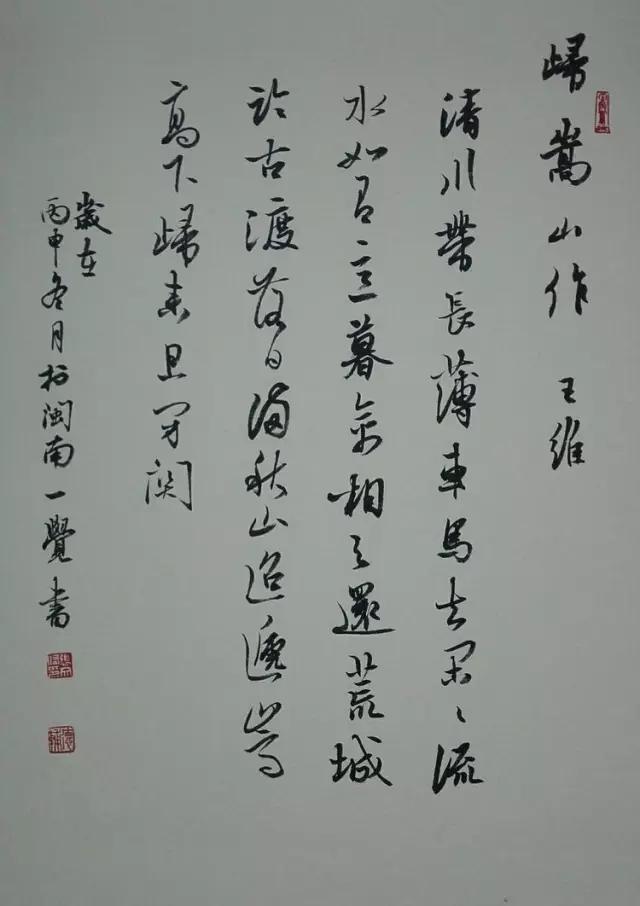 歸嵩山作 王維
清川帶長薄車馬去閑々流
水如有意暮禽相与還荒城
临古渡落日滿秋山迢遞嵩
高下歸来且閉関
歲在
丙申冬月於閩南一覺書